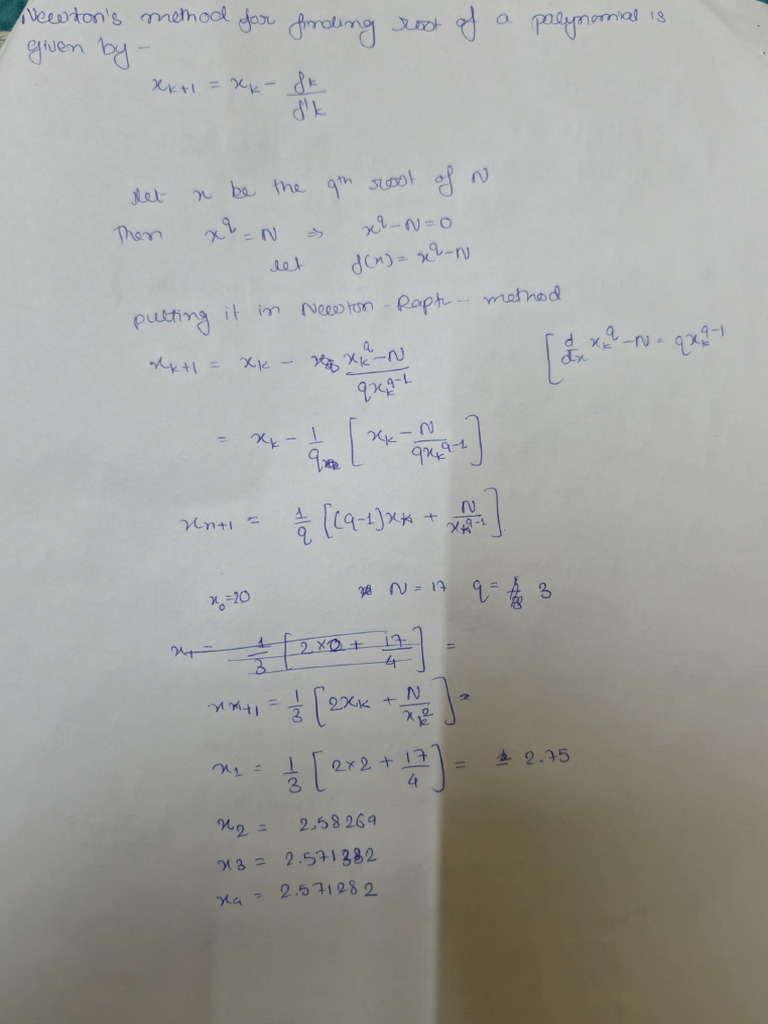 Newton's method for finding root of a polynomial is
given by -
x_{k+1} = x_k - f_k / f'_k
Let x be the qth root of N
Then x^q = N ⇒ x^q - N = 0
Let f(x) = x^q - N
putting it in Newton - Raph-- method
x_{k+1} = x_k - (x_k^q - N) / (q x_k^{q-1}) [d/dx x_k^q - N = q x_k^{q-1}
= x_k - 1/q [x_k - N / (q x_k^{q-1})]
x_{n+1} = 1/q [(q-1) x_k + N / x_k^{q-1}]
N = 17 q = 3
x_1 = 1/3 [2×0 + 17/4] =
x_{k+1} = 1/3 [2x_k + N / x_k^2] =
x_1 = 1/3 [2×2 + 17/4] = 2.75
x_2 = 2.58269
x_3 = 2.571332
x_4 = 2.571282